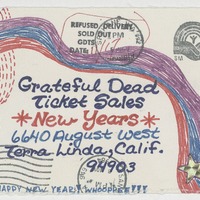 REFUSED DELIVERY
SOLD OUT
GDTS
DATE
PM
Grateful Dead
Ticket Sales
*New Years*
6640 August West
Terra Linda, Calif.
94903
HAPPY NEW YEAR! WHOOPEE!!!